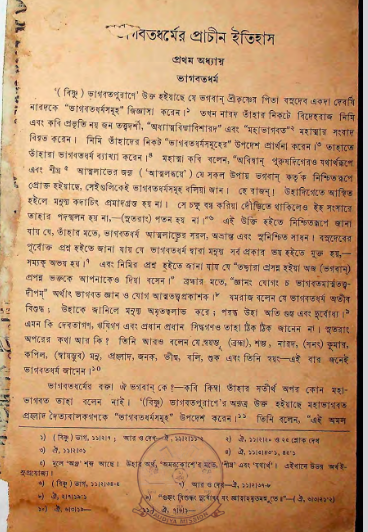 ভাগবতধর্মের প্রাচীন ইতিহাস
প্রথম অধ্যায়
ভাগবতধর্ম
'(বিষ্ণু) ভাগবতপুরাণে' উক্ত হইয়াছে যে ভগবান্ শ্রীকৃষ্ণের পিতা বসুদেব একদা দেবর্ষি
নারদকে "ভাগবতধর্মসমূহ" জিজ্ঞাসা করেন।১ তখন নারদ তাঁহার নিকটে বিদেহরাজ নিমি
এবং কবি প্রভৃতি নয় জন তত্ত্বদর্শী, "অধ্যাত্মবিদ্যাবিশারদ" এবং "মহাভাগবত"২ মহাত্মার সংবাদ
বিবৃত করেন। নিমি তাঁহাদের নিকট "ভাগবতধর্মসমূহের" উপদেশ প্রার্থনা করেন।৩ তাহাতে
তাঁহারা ভাগবতধর্ম ব্যাখ্যা করেন।৪ মহাত্মা কবি বলেন, "অবিদ্বান্ পুরুষদিগেরও যথার্থরূপে
এবং শীঘ্র৫ আত্মলাভের জন্য ('আত্মলব্ধয়ে') যে সকল উপায় ভগবান্ কর্তৃক নিশ্চিতরূপে
প্রোক্ত হইয়াছে, সেইগুলিকেই ভাগবতধর্মসমূহ বলিয়া জান। হে রাজন্! উহাদিগেতে আস্থিত
হইলে মনুষ্য কদাচিৎ প্রমাদগ্রস্ত হয় না। সে চক্ষু বন্ধ করিয়া দৌড়িতে থাকিলেও ইহ সংসারে
তাহার পদস্খলন হয় না,—(সুতরাং) পতন হয় না।"৬ এই উক্তি হইতে নিশ্চিতরূপে জানা
যায় যে, তাঁহার মতে, ভাগবতধর্ম আত্মলাভের সরল, অভ্রান্ত এবং সুনিশ্চিত সাধন। বসুদেবের
পূর্বোক্ত প্রশ্ন হইতে জানা যায় যে ভাগবতধর্ম দ্বারা মনুষ্য সর্ব প্রকার ভয় হইতে মুক্ত হয়,—
সম্যক্ অভয় হয়। এবং নিমির প্রশ্ন হইতে জানা যায় যে "তদ্দ্বারা প্রসন্ন হইয়া অজ (ভগবান্)
প্রপন্ন ভক্তকে আপনাকেও দিয়া বসেন।" ব্রহ্মার মতে, "জ্ঞানং যোগং চ ভাগবতমাত্মতত্ত্ব-
দীপম্" অর্থাৎ ভাগবত জ্ঞান ও যোগ আত্মতত্ত্বপ্রকাশক। যমরাজ বলেন যে ভাগবতধর্ম অতীব
বিশুদ্ধ; উহাকে জানিলে মনুষ্য অমৃতত্বলাভ করে; পরন্তু উহা অতি গুহ্য এবং দুর্বোধ্য।
এমন কি দেবতাগণ, ঋষিগণ এবং প্রধান প্রধান সিদ্ধগণও তাহা ঠিক ঠিক জানেন না। সুতরাং
অপরের কথা আর কি? তিনি আরও বলেন যে স্বয়ম্ভূ (ব্রহ্মা), শম্ভু, নারদ, (সনৎ) কুমার,
কপিল, (স্বায়ম্ভুব) মনু, প্রহ্লাদ, জনক, ভীষ্ম, বলি, শুক এবং তিনি স্বয়ং—এই বার জনেই
ভাগবতধর্ম জানেন।১০
ভাগবতধর্মের বক্তা ঐ ভগবান্ কে?—কবি কিম্বা তাঁহার সতীর্থ অপর কোন মহা-
ভাগবত তাহা বলেন নাই। '(বিষ্ণু) ভাগবতপুরাণে'র অন্যত্র উক্ত হইয়াছে মহাভাগবত
প্রহ্লাদ দৈত্যবালকগণকে "ভাগবতধর্মসমূহ" উপদেশ করেন।১১ তিনি বলেন, "এই অমল
১) (বিষ্ণু) ভাগ,
৩) ঐ,
৫) মূলে 'অঞ্জঃ' শব্দ আছে।